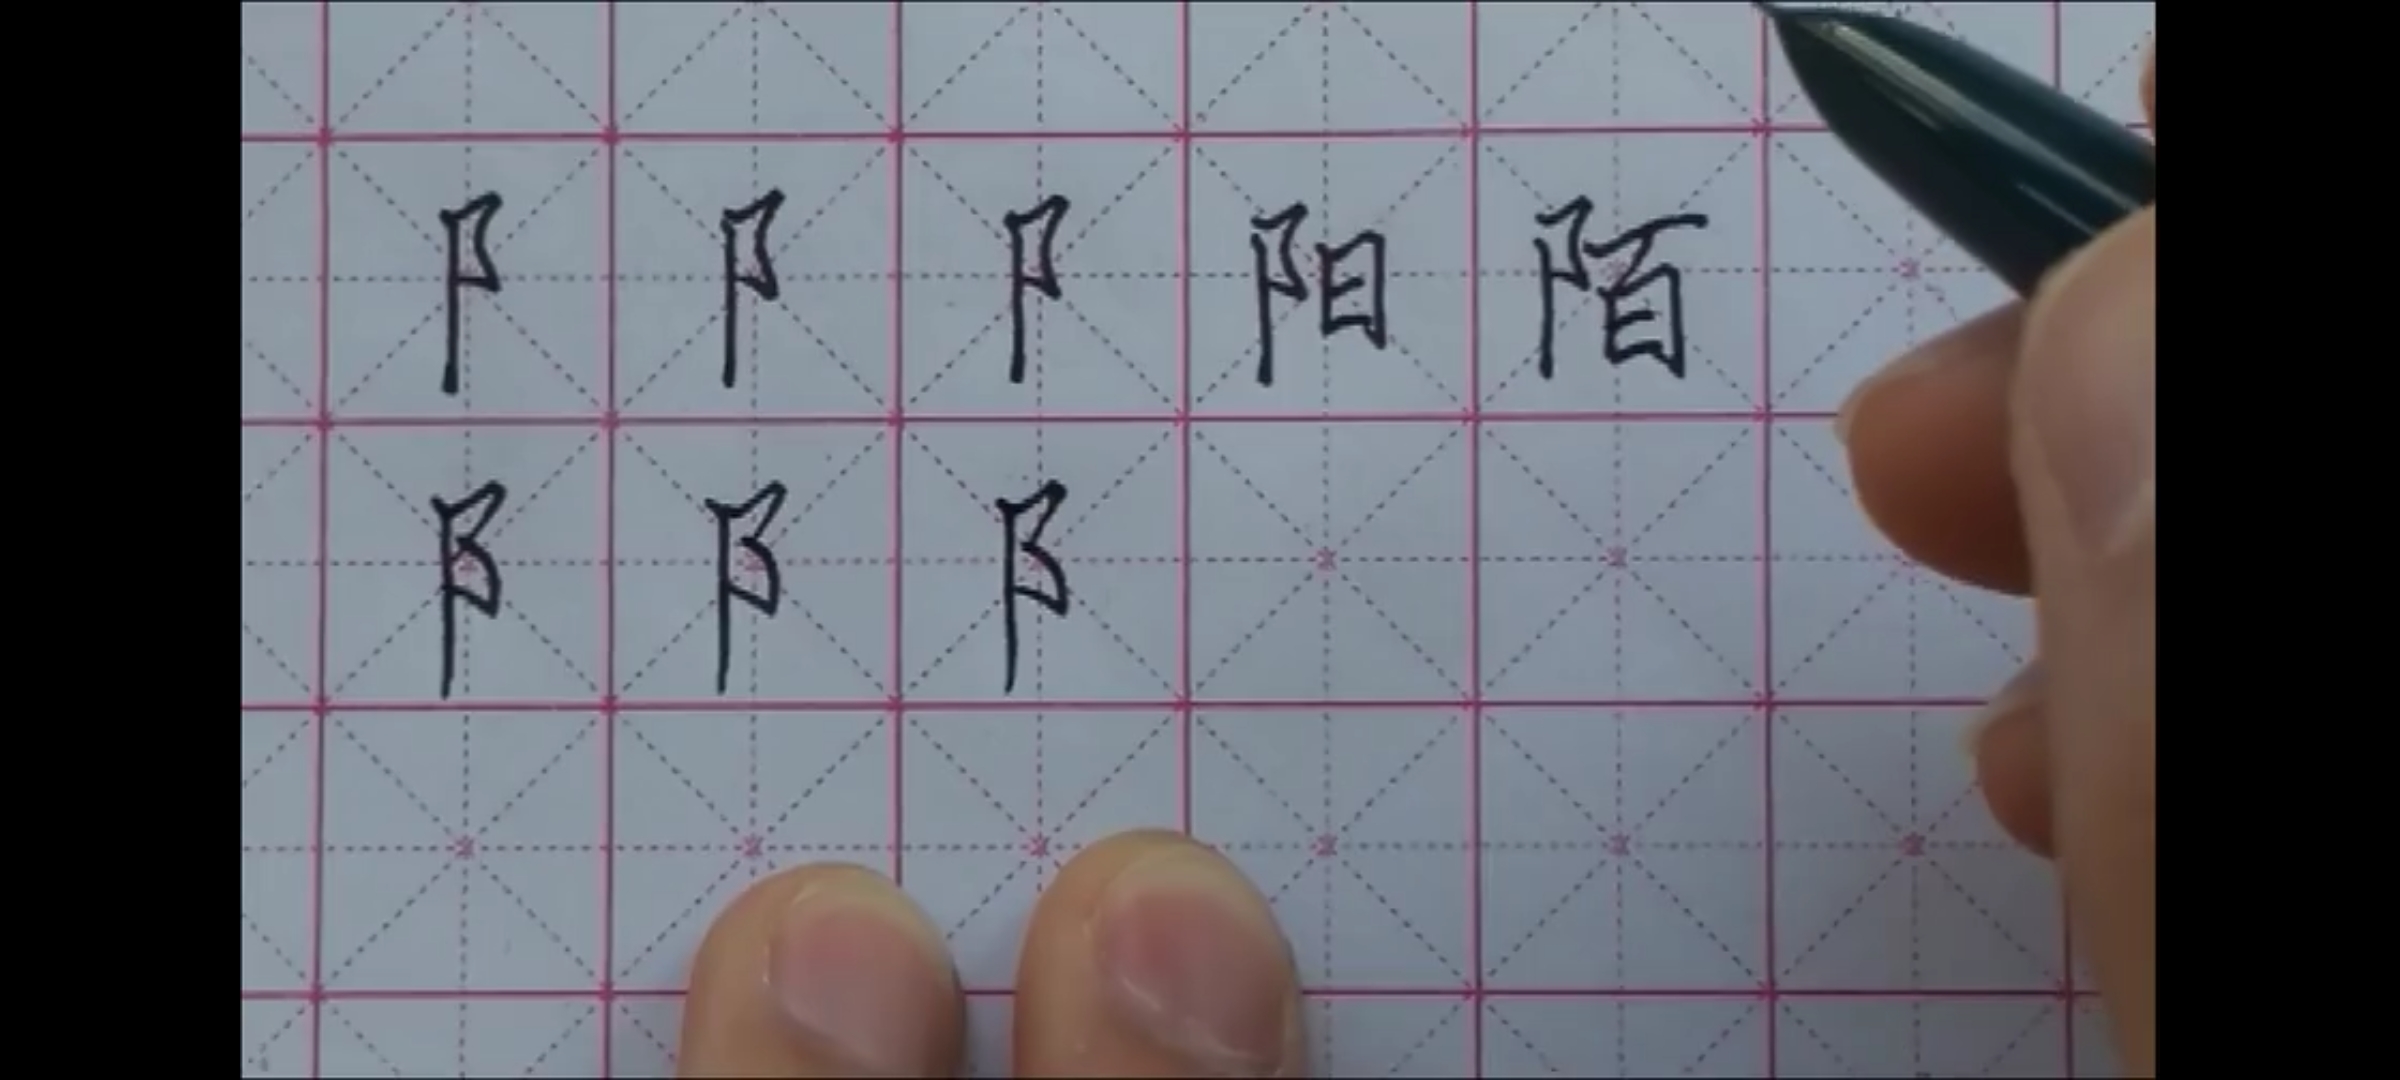 阝阝阝阳陌
阝阝阝